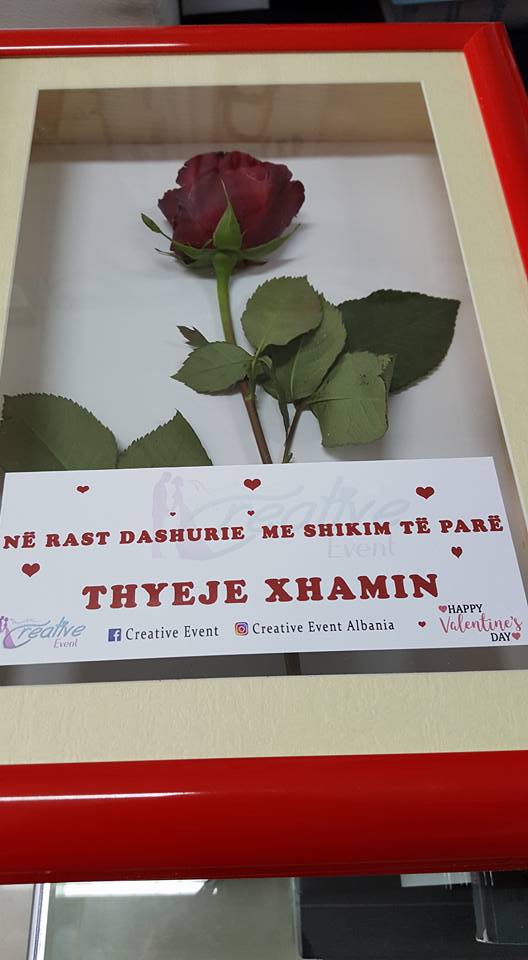 NË RAST DASHURIE ME SHIKIM TË PARË
THYEJE XHAMIN
Creative Event
Creative Event
Creative Event
Creative Event Albania
HAPPY
Valentine's
DAY